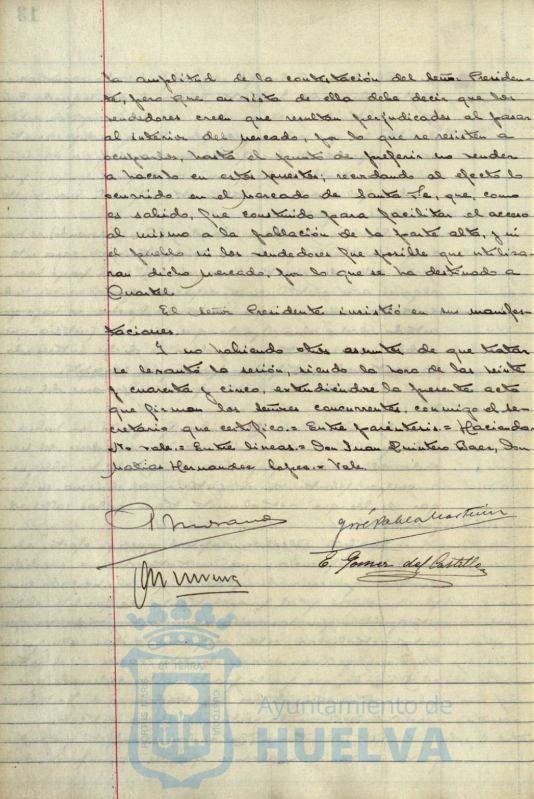 la amplitud de la contestación del señor Presiden-
te, pero que en vista de ella debe decir que los
vendedores creen que resultan perjudicados al pasar
al interior del mercado, por lo que se resisten a
ocuparlos, hasta el punto de preferir no vender
a hacerlo en estos puestos; recordando al efecto lo
ocurrido en el Mercado de Santa Fe, que, como
es sabido, fue construido para facilitar el acceso
al mismo a la población de la parte alta, y ni
el pueblo ni los vendedores fue posible que utiliza-
ran dicho mercado, por lo que se ha destinado a
Cuartel.
El señor Presidente insistió en sus manifes-
taciones.
Y no habiendo otros asuntos de que tratar
se levantó la sesión, siendo la hora de las veinte
y cuarenta y cinco, extendiéndose la presente acta
que firman los señores concurrentes, conmigo el se-
cretario que certifico.= Entre paréntesis.= Hacienda.
No vale.= Entre lineas.= Don Juan Quintero Baez, Don
Matias Hernandez Lopez.= Vale.
E. Gomez del Castillo
PORTUS MARIS
ET TERRÆ
CUSTODIA
Ayuntamiento de
HUELVA